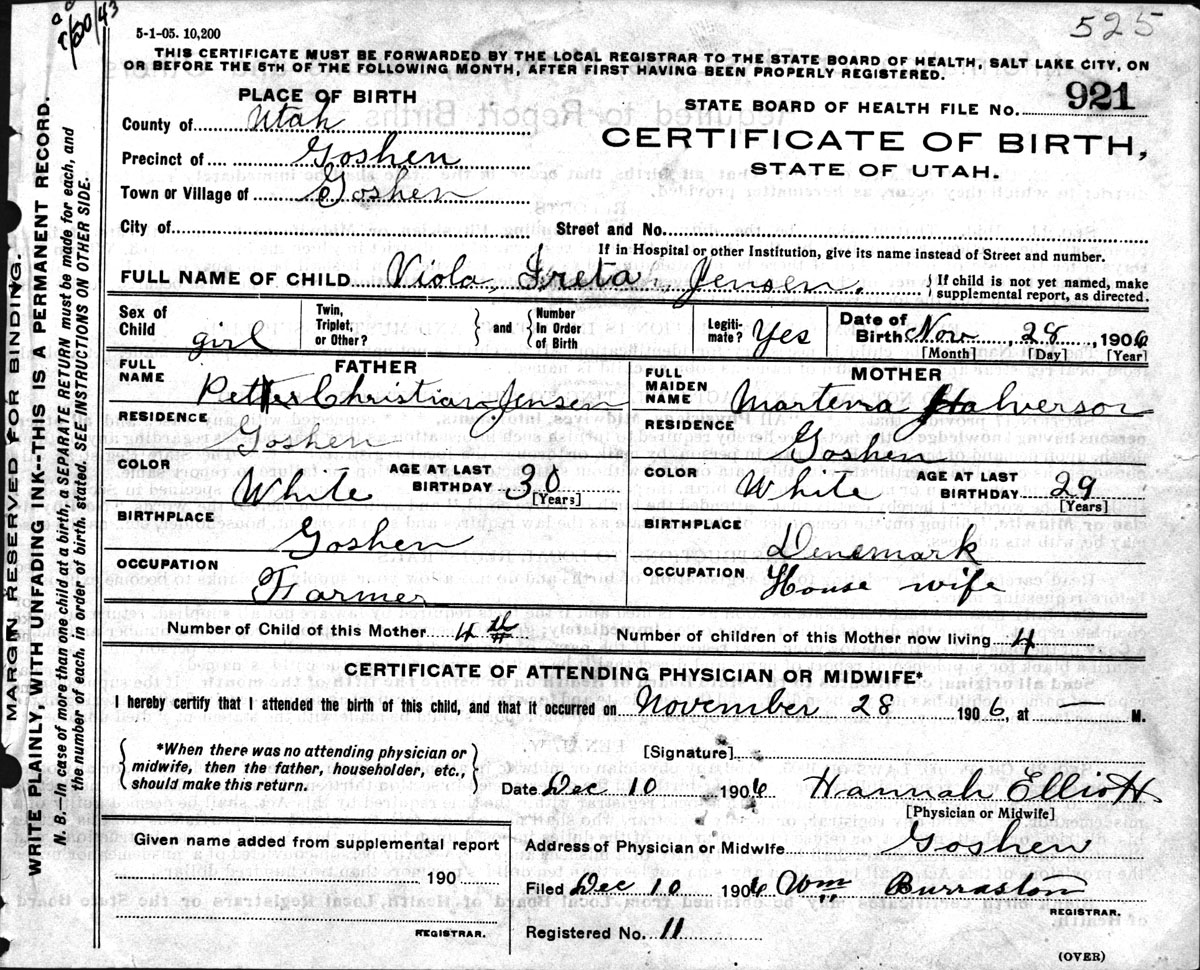 5-1-05. 10,200
525
THIS CERTIFICATE MUST BE FORWARDED BY THE LOCAL REGISTRAR TO THE STATE BOARD OF HEALTH, SALT LAKE CITY, ON
OR BEFORE THE 5TH OF THE FOLLOWING MONTH, AFTER FIRST HAVING BEEN PROPERLY REGISTERED.
PLACE OF BIRTH
STATE BOARD OF HEALTH FILE No. 921
County of Utah
CERTIFICATE OF BIRTH,
Precinct of Goshen
STATE OF UTAH.
Town or Village of Goshen
City of
Street and No.
If in Hospital or other Institution, give its name instead of Street and number.
FULL NAME OF CHILD Viola, Greta, Jensen.
{If child is not yet named, make
supplemental report, as directed.
Sex of Child girl
Twin, Triplet, or Other? } and { Number In Order of Birth
Legiti-mate? Yes
Date of Birth Nov. 28, 1906
[Month] [Day] [Year]
FATHER
FULL NAME Petter Christian Jensen
RESIDENCE Goshen
COLOR White AGE AT LAST BIRTHDAY 30 [Years]
BIRTHPLACE Goshen
OCCUPATION Farmer
MOTHER
FULL MAIDEN NAME Martena Halverson
RESIDENCE Goshen
COLOR White AGE AT LAST BIRTHDAY 29 [Years]
BIRTHPLACE Denemark
OCCUPATION House wife
Number of Child of this Mother 4th Number of children of this Mother now living 4
CERTIFICATE OF ATTENDING PHYSICIAN OR MIDWIFE*
I hereby certify that I attended the birth of this child, and that it occurred on November 28 1906, at — M.
{ *When there was no attending physician or
midwife, then the father, householder, etc.,
should make this return. }
[Signature]
Date Dec 10 1906 Hannah Elliott
[Physician or Midwife]
Given name added from supplemental report
190
REGISTRAR.
Address of Physician or Midwife Goshen
Filed Dec 10 1906 Wm Burraston
REGISTRAR.
Registered No. 11
(OVER)
MARGIN RESERVED FOR BINDING.
WRITE PLAINLY WITH UNFADING INK--THIS IS A PERMANENT RECORD.
N. B.—In case of more than one child at a birth, a SEPARATE RETURN must be made for each, and
the number of each, in order of birth, stated. SEE INSTRUCTIONS ON OTHER SIDE.